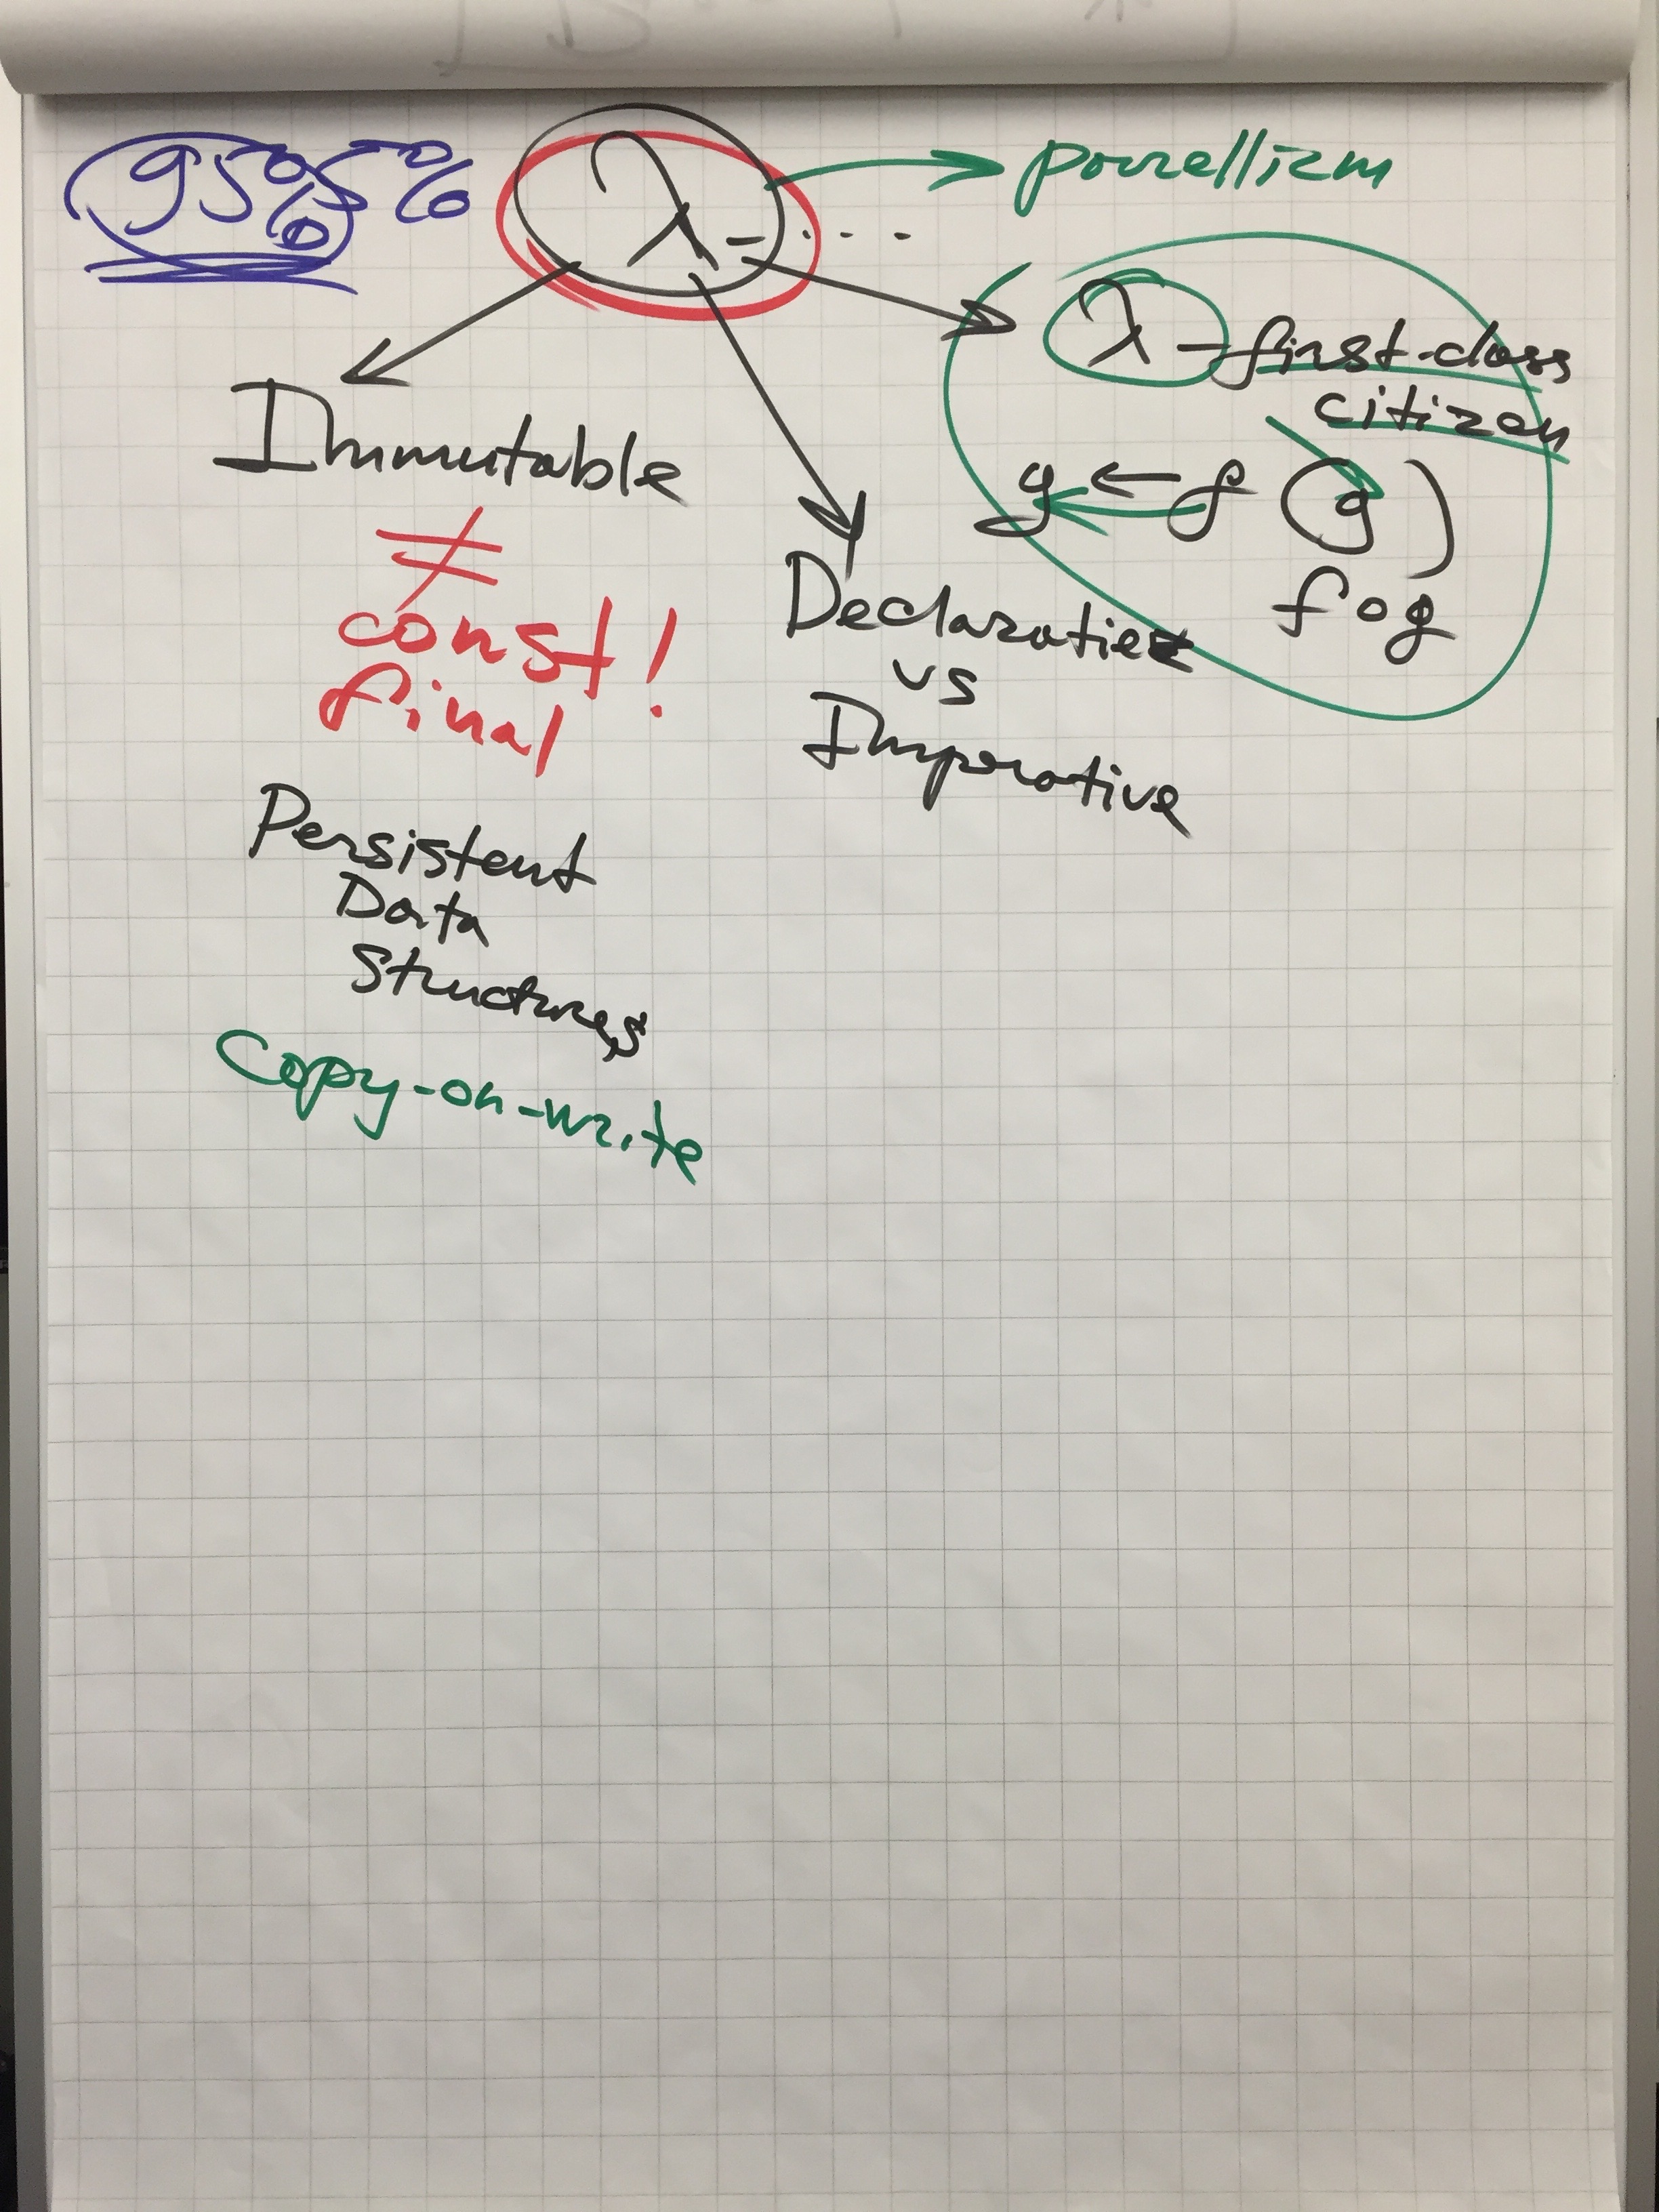 95%
λ - ...
parellizm
Immutable
≠
const!
final!
Persistent
Data
Structures
Copy-on-write
Declarative
vs
Imperative
λ - first-class
citizen
y ← f(g)
f∘g